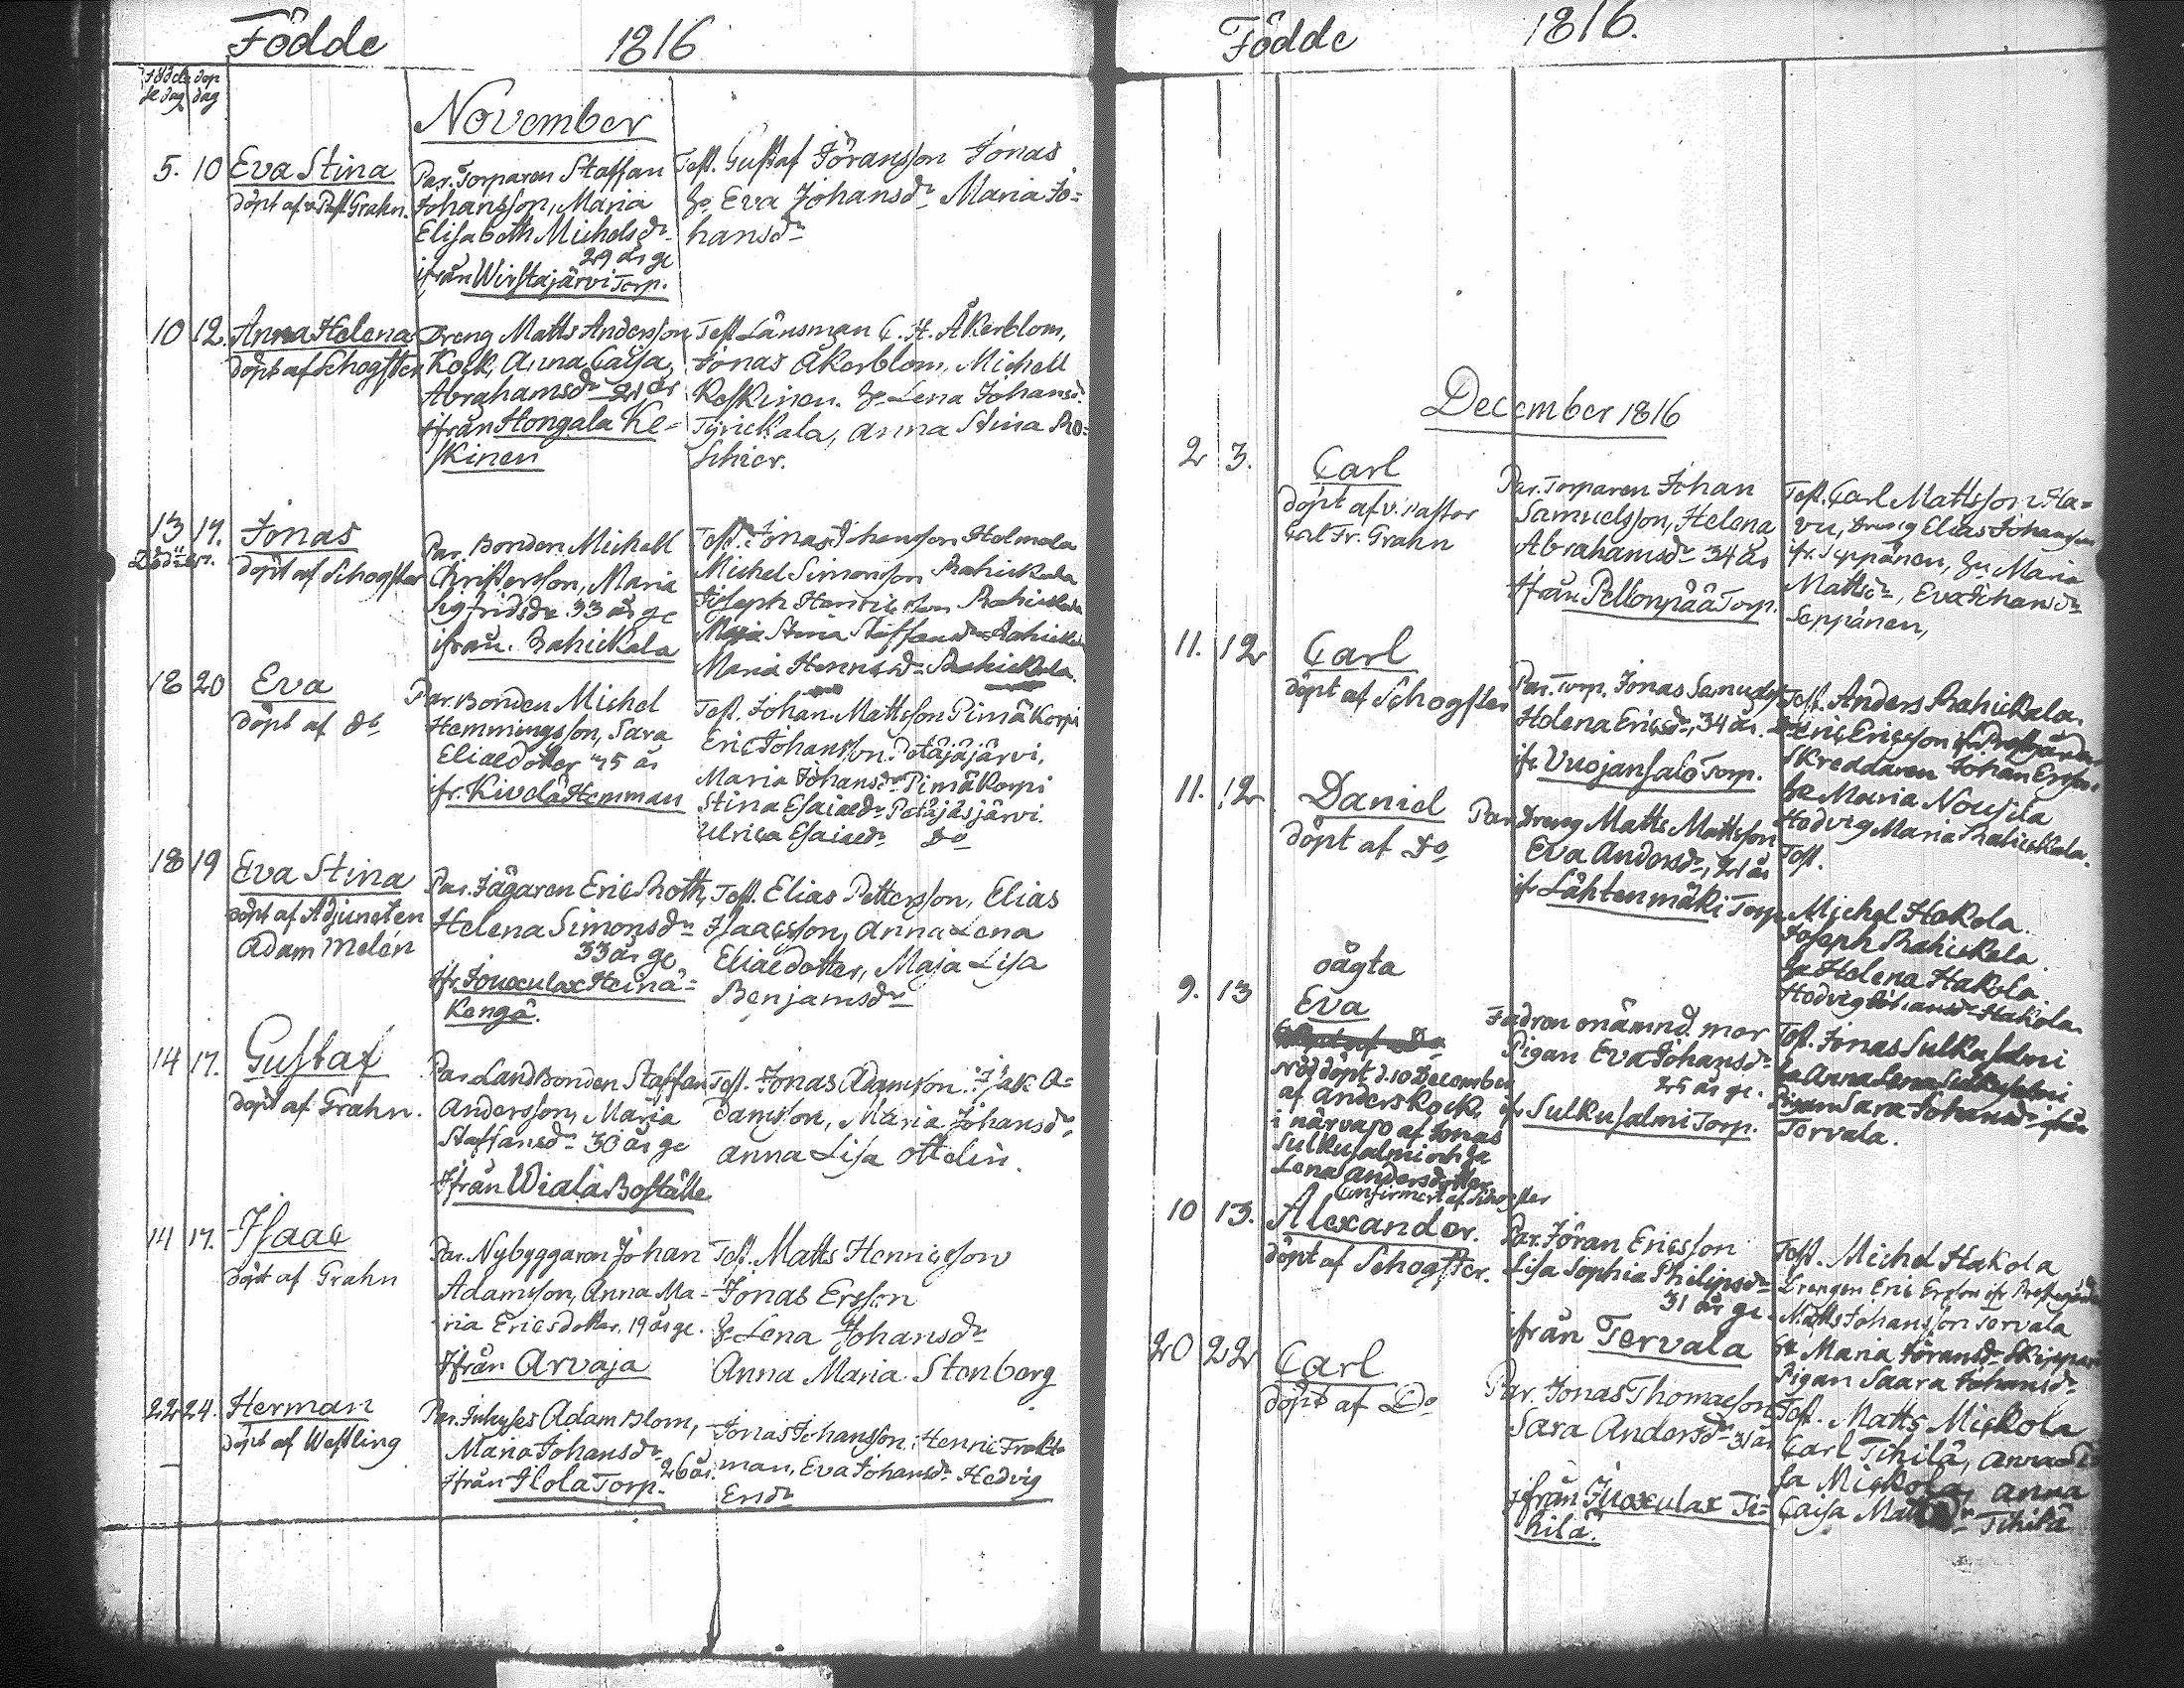 Födde 1816
födelse dag
dop dag
November
5. 10 Eva Stina
döpt af v. Past. Grahn.
Par. Torparen Staffan
Johansson, Maria
Elisabeth Michelsdr
29 år ge
ifrån Wirstajärvi Torp.
Test. Gustaf Göransson Jonas
hu Eva Johansdr Maria Jo=
hansdr
10 12. Anna Helena
döpt af Schogster
Dreng Matts Andersson
Kock, Anna Caisa
Abrahamsdr 21 år
ifrån Hongala Ke=
skinen
Test Länsman C. H. Åkerblom,
Jonas Åkerblom, Michell
Keskinen. hu Lena Johansd.
Tyrickala, Anna Stina Ro=
schier.
13 17. Jonas
döpt af Schogster
Par. Bonden Michell
Christersson, Maria
Sigfridsdr 33 år ge
ifrån. Rahickala
Test. Jonas Johansson Holmola
Michel Simonsson Rahickala
Joseph Henricsson Rahickala
Maja Stina Staffansdr Rahickala
Maria Hennsdr Rahickala.
18 20 Eva
döpt af do
Par. Bonden Michel
Hemmingsson, Sara
Eliaedotter 45 år
ifr. Kivelä Hemman
Test. Johan Mattsson Pimäkorpi
Eric Johansson. Petäjäjärvi.
Maria Johansdr Pimäkorpi
Stina Esaiaedr Petäjäsjärvi.
Ulrica Esaiaedr Do
18 19 Eva Stina
döpt af Adjuncten
Adam Melén
Par. Jägaren Eric Roth,
Helena Simonsdr
33 år ge
ifr. Jouxulax Heinä=
Kengä.
Test. Elias Pettersson, Elias
Isaacsson, Anna Lena
Eliaedotter, Maja Lisa
Benjamsdr
14 17. Gustaf
döpt af Grahn.
Par. Landbonden Staffan
Andersson, Maria
Staffansdr 30 år ge
Ifrån Wiala Boställe
Test. Jonas Adamsson. Isak A=
damsson, Maria Johansdr,
Anna Lisa Ottelin.
14 17. Isaac
döpt af Grahn
Par. Nybyggaren Johan
Adamsson, Anna Ma=
ria Ericsdotter. 19 år ge.
Ifrån Arvaja
Test. Matts Henricsson
Jonas Ersson
hu Lena Johansdr
Anna Maria Stenberg
22 24. Herman
döpt af Westling
Par. Inhyses Adam Blom,
Maria Johansdr
26 år.
Ifrån Ilola Torp.
Jonas Johansson. Henric
man, Eva Johansdr Hedvig
Ersdr
Födde 1816.
December 1816
2 3. Carl
döpt af v. Pastor
Carl Fr. Grahn
Par. Torparen Johan
Samuelsson, Helena
Abrahamsdr 34 år
ifrån Pellonpää Torp.
Test. Carl Mattsson Ha=
vu, dreng Elias Johansson
ifr. Seppänen, hu Maria
Mattsdr, Eva Johansdr
Seppänen,
11. 12 Carl
döpt af Schogster
Par. Torp. Jonas Samuelss
Helena Ericsdr, 34 år.
ifr. Vuojansalo Torp.
Test. Anders Rahickala.
Eric Ericsson ifr Prestgården
Skreddaren Johan Ersson.
hu Maria Nousila
Hedvig Maria Rahickala.
11. 12 Daniel
döpt af Do
Par. Dreng Matts Mattsson
Eva Andersdr, 21 år
ifr Lähtenmäki Torp.
Test.
Michel Hakola.
Joseph Rahickala.
hu Helena Hakola
Hedvig Johansdr Hakola.
9. 13 oägta
Eva
nöddöpt d. 10 December
af Anders Kock,
i närvaro af Jonas
Sulkusalmi och hu
Lena Andersdotter
Confirmert af Schogster
Fadren onämnd. mor
Pigan Eva Johansdr
25 år ge.
ifr Sulkusalmi Torp.
Test. Jonas Sulkusalmi
hu Anna Lena Sulkusalmi
Pigan Sara Johansdr ifrån
Tervala.
10 13. Alexander.
döpt af Schogster.
Par. Jöran Ericsson
Lisa Sophia Philipsdr
31 år ge.
ifrån Tervala
Test. Michel Hakola
Drengen Eric Ersson ifr Prestegården
Matts Johansson Tervala
hu Maria Jöransdr
Pigan Saara Johansdr
20 22 Carl
döpt af Do
Par. Jonas Thomaeson
Sara Andersdr 31 år
ifrån Juoxulax Ti=
hilä.
Test. Matts Mickola
Carl Tihilä, Anna
sa Mickola, Anna
Caisa Tihilä